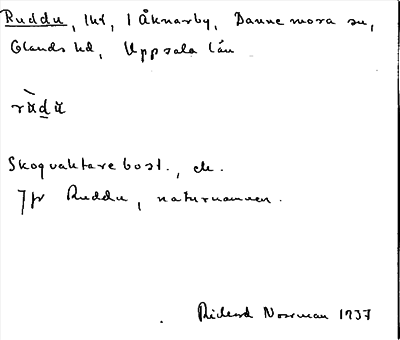 Ruddu, lht, i Åknarby, Dannemora sn,
Olands hd, Uppsala län
Skogvaktarebost., 
Jfr Ruddu, naturnamnen.
Rickard Norrman 1937